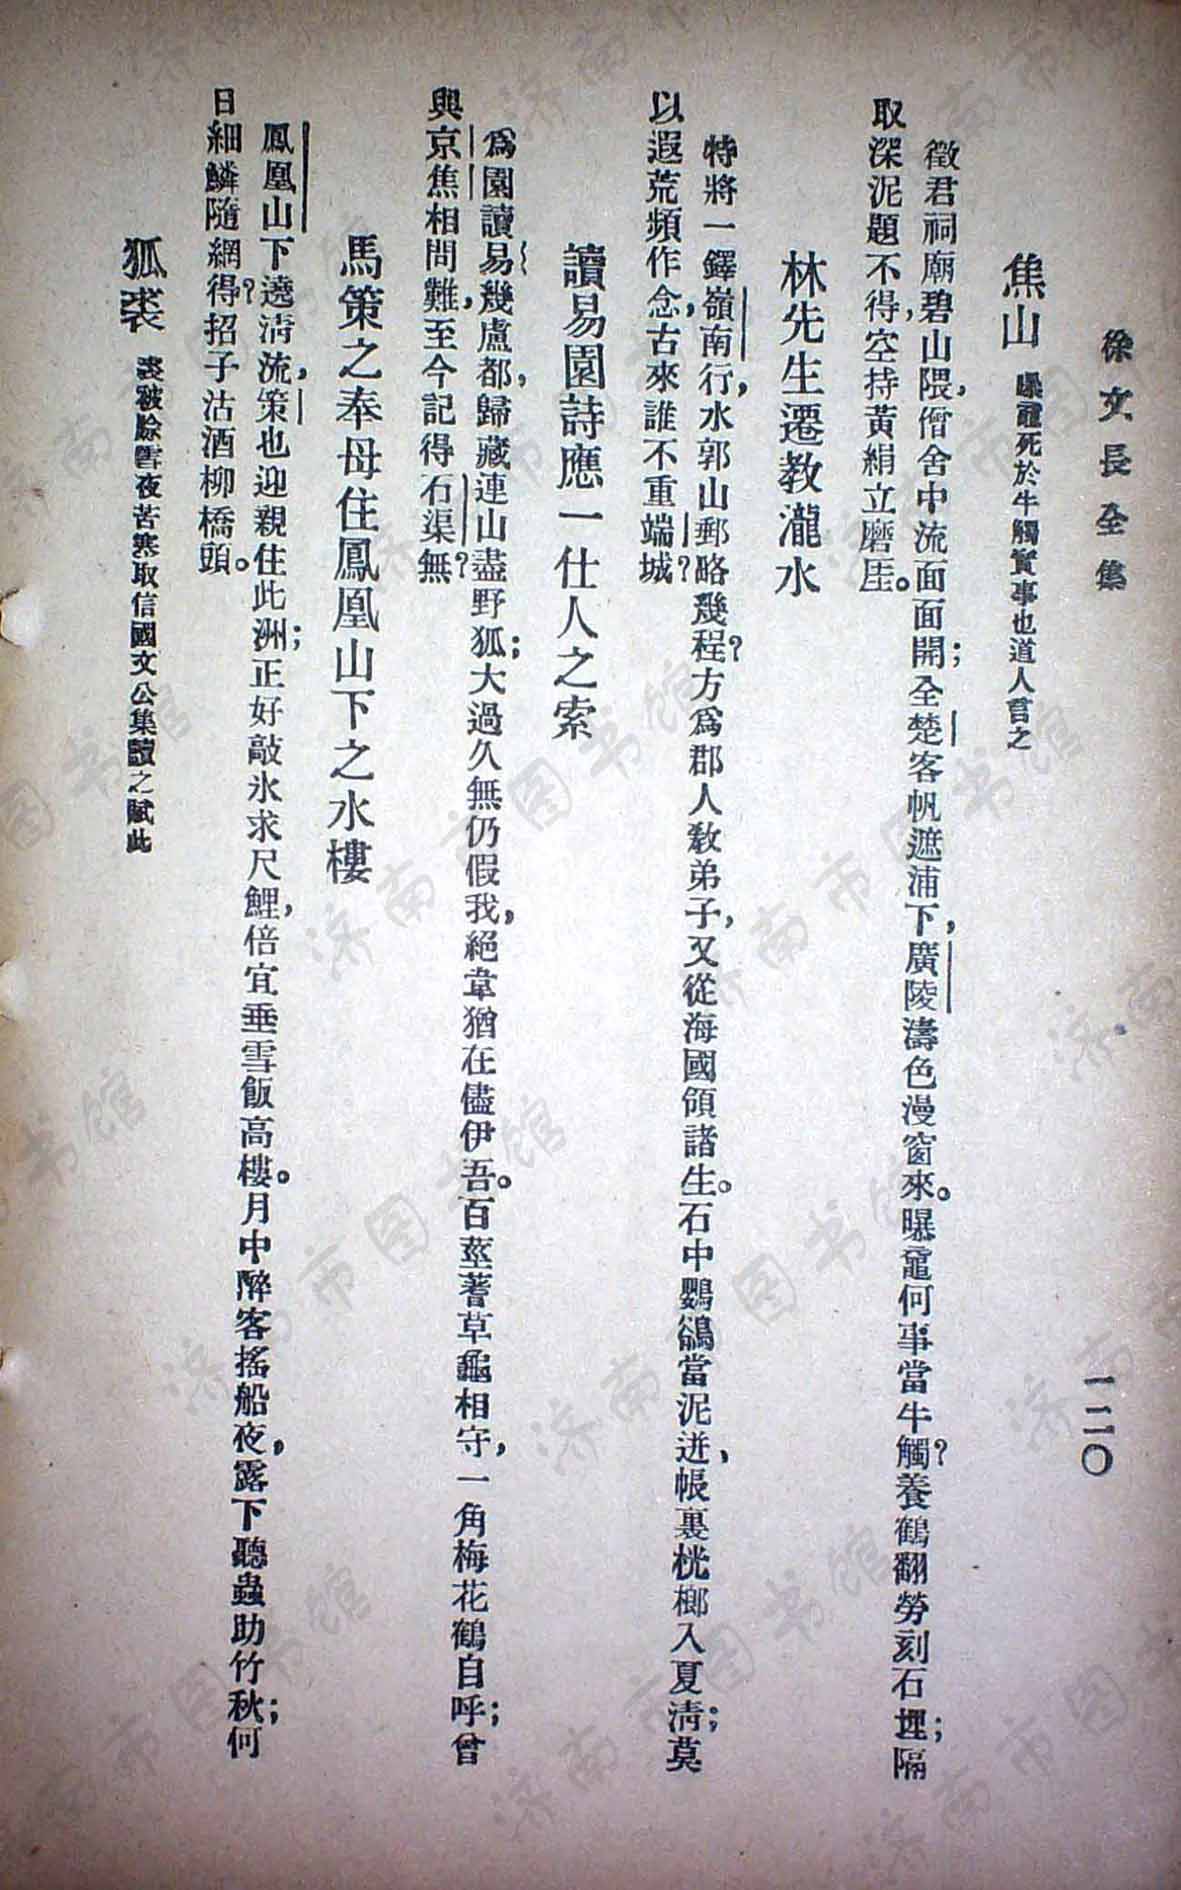 徐文長全集
一二〇
焦山 曝黿死於牛觸實事也道人言之
徵君祠廟碧山隈，僧舍中流面面開；全楚客帆遮浦下，廣陵濤色漫窗來。曝黿何事當牛觸？養鶴翻勞刻石埋；隔
取深泥題不得，空持黃絹立磨厓。
林先生遷教瀧水
特將一鐸嶺南行，水郭山郵略幾程？方爲郡人教弟子，又從海國領諸生。石中鸚鵒當泥迸，帳裏桄榔入夏淸；莫
以遐荒頻作念，古來誰不重端城？
讀易園詩應一仕人之索
爲園讀易幾盧都，歸藏連山盡野狐；大過久無仍假我，絕韋猶在儘伊吾。百莖蓍草龜相守，一角梅花鶴自呼；曾
與京焦相問難，至今記得石渠無？
馬策之奉母住鳳凰山下之水樓
鳳凰山下遶淸流，策也迎親住此洲；正好敲氷求尺鯉，倍宜垂雪飯高樓。月中醉客搖船夜，露下聽蟲助竹秋；何
日細鱗隨網得？招子沽酒柳橋頭。
狐裘 裘被賒雪夜苦寒取信國文公集讀之賦此
济南市图书馆